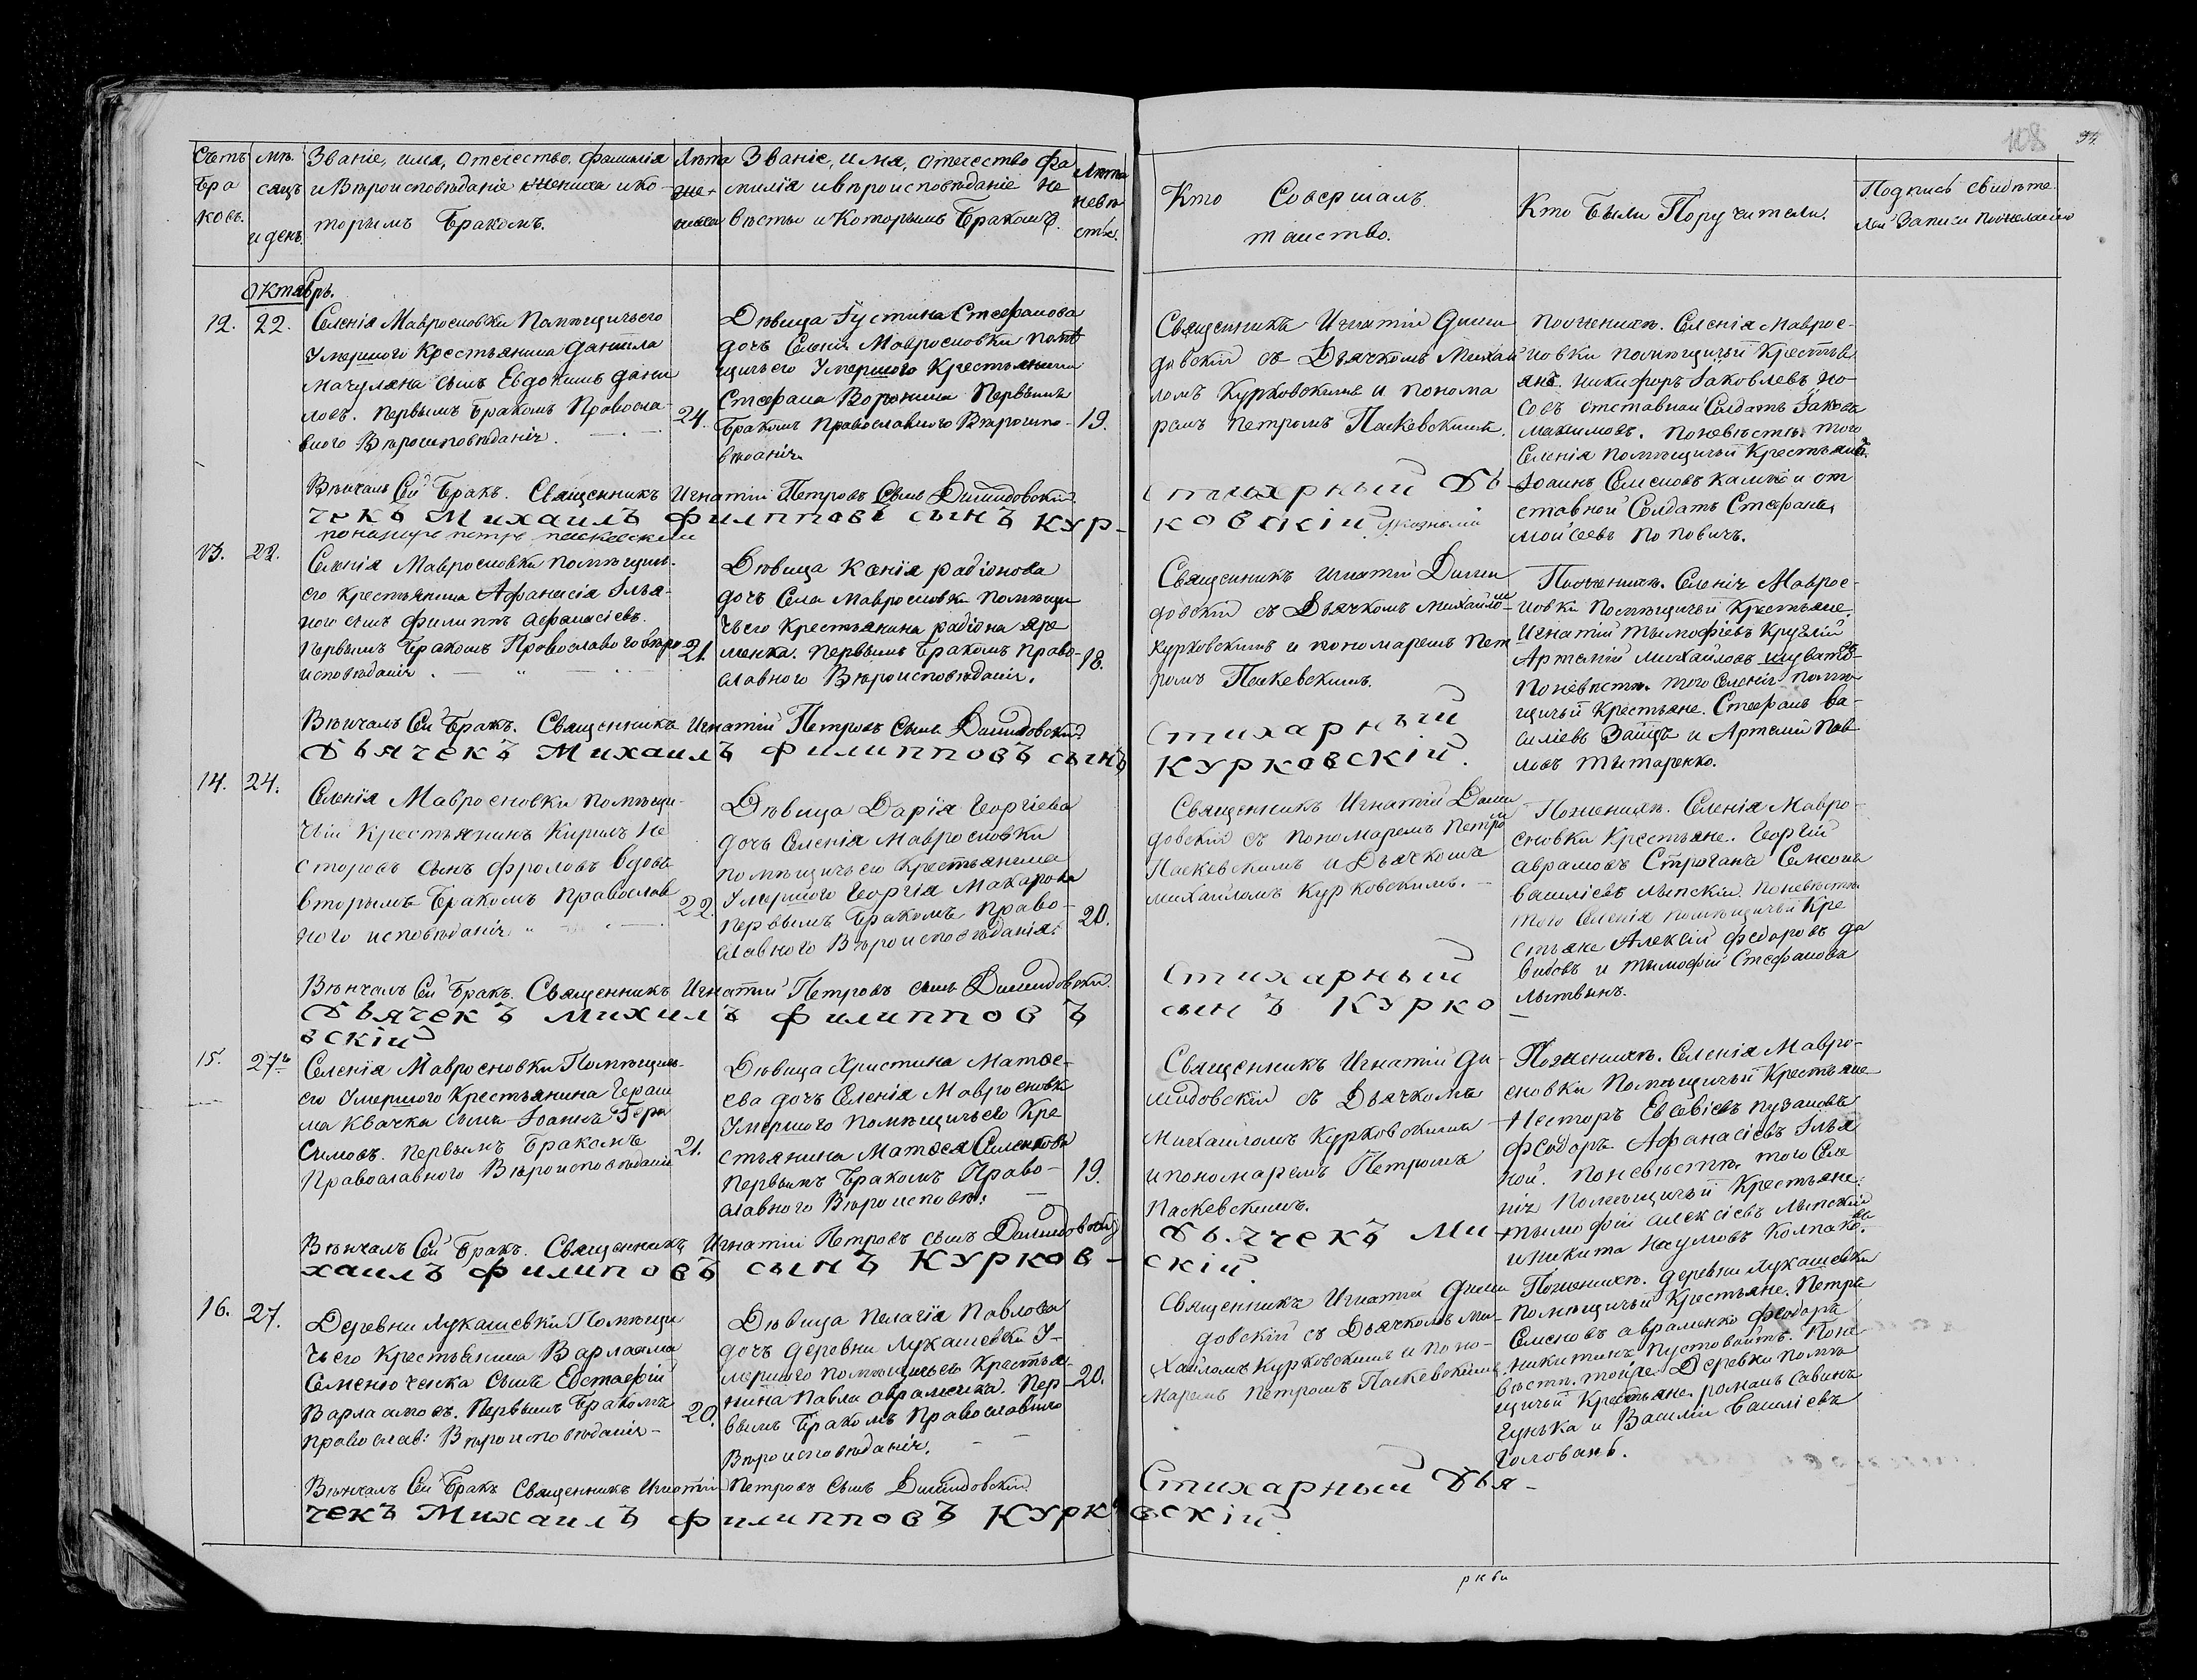 108
Счетъ браковъ.
Мѣсяцъ и день.
Званіе, имя, отечество, фамилія
и Вѣроисповѣданіе жениха и ко-
торымъ бракомъ.
Лѣта жениха
Званіе, имя, отечество фа
милія и вѣроисповѣданіе не
вѣсты и которымъ бракомъ.
Лѣта невѣсты.
Кто Совершалъ
таинство.
Кто были Поручители.
Подпись свидѣте
лей записи по желанію
Октябрь.
12. 22.
Селенія Мавросновки Помѣщичьего
Умершого Крестьянина Данила
сынъ Евдокимъ Дани
ловъ. первымъ бракомъ Православ
вного Вѣроисповѣданія.
24.
Дѣвица Іустина Стефанова
дочь Селенія Мавросновки помѣ
щичьего Умершого Крестьянина
Стефана Воронина Первымъ
бракомъ православного Вѣроиспо-
вѣданія
19.
Священникъ Игнатій Дими
довскій съ Дьячкомъ Михаи
ломъ Курковскимъ и понома
ремъ петромъ Паскевскимъ.
по женихѣ. Селенія Мавро-
сновки помѣщичьи Крестья
янѣ. Никифоръ Іаковлевъ
отставной Солдатъ Іаковъ
Максимовъ. по невѣстѣ. того
Селенія помѣщичьи Крестьяне
Іоаннъ Семеновъ и от
ставной Солдатъ Стефанъ
Мойсеевъ Поповичъ.
Вѣнчалъ Сей бракъ. Священникъ Игнатій Петровъ Сынъ Димидовскій
Стихарный дья
чекъ Михаилъ филипповъ сынъ кур-
ковскій
пономарь петръ паскевскій
13. 22.
Селенія Мавросновки помѣщичь-
его крестьянина Афанасія Ілья-
ного сынъ филиппъ Афанасіевъ.
первымъ бракомъ Православного вѣро
исповѣданія.
21.
Дѣвица Ксенія радіонова
дочь Села Мавросновки помѣщи
чьего крестьянина радіона яре
менка. первымъ бракомъ право-
славного Вѣроисповѣданія.
18.
Священникъ Игнатій Дими
довскій съ Дьячкомъ Михаиломъ
курковскимъ и пономаремъ Пет
ромъ Паскевскимъ.
По женихѣ. Селенія Мавро-
сновки Помѣщичьи Крестьяне.
Игнатій тымофіевъ Круглій
Артемій Михайловъ
По невѣстѣ. того Селенія помѣ
щичьи крестьяне. Стефанъ Ва-
силіевъ Заицъ и Артемій Пав
ловъ Титаренко.
Вѣнчалъ Сей бракъ. Священникъ Игнатій Петровъ сынъ Димидовскій
Стихарный
Дьячекъ Михаилъ филипповъ сынъ
Курковскій.
14. 24.
Селенія Мавросновки помѣщи-
чій крестьянинъ Кирилъ Не
сторовъ сынъ фроловъ вдовъ
вторымъ бракомъ православ
ного исповѣданія
22.
Дѣвица Дарія Георгіева
дочь Селенія Мавросновки
помѣщичьего крестьянина
Умершого Георгія Макарова
первымъ бракомъ право-
славного Вѣроисповѣданія.
20.
Священникъ Игнатій Дими
довскій съ пономаремъ Петромъ
Паскевскимъ и Дьячкомъ
михаиломъ Курковскимъ.
По женихѣ. Селенія Мавро-
сновки Крестьяне. Георгій
аврамовъ Строганъ Симеонъ
василіевъ лыпскій. По невѣстѣ
того Селенія помѣщичьи Кре
стьяне Алексій федоровъ да
видовъ и тымофій Стефановъ
лытвынъ.
Вѣнчалъ Сей бракъ. Священникъ Игнатій Петровъ сынъ Димидовскій.
Стихарный
Дьячекъ михаилъ филипповъ
сынъ Курко
вскій
15. 27
Селенія Мавросновки Помѣщичь-
его Умершого Крестьянина Гераси
ма Квачка сынъ Іоаннъ Гера
симовъ. первымъ бракомъ
Православного Вѣроисповѣданія
21.
Дѣвица Христина Матѳе-
ева дочь Селенія Мавросновки
Умершого помѣщичьего Кре
стьянина Матѳея Семенова
первымъ бракомъ Право-
славного Вѣроисповѣ:
19.
Священникъ Игнатій Ди-
мидовскій съ Дьячкомъ
Михаиломъ Курковскимъ
и пономаремъ Петромъ
Паскевскимъ.
По женихѣ. Селенія Мавро-
сновки Помѣщичьи Крестьяне
Несторъ Евсевіевъ пузановъ
Федоръ Афанасіевъ Ілья
ной. По невѣстѣ. того Селе
нія Помѣщичьи Крестьяне.
тымофій алексіевъ Лыпскій
и никита Наумовъ Колпаковъ.
Вѣнчалъ Сей бракъ. Священникъ Игнатій Петровъ сынъ Димидовскій
Дьячекъ Ми-
хаилъ филиповъ сынъ Курков-
скій.
16. 27.
Деревни Лукашевки Помѣщи
чьего Крестьянина Варлаама
Семенюченка сынъ Евстафій
Варлаамовъ. Первымъ бракомъ
православ: Вѣроисповѣданія-
20.
Дѣвица Пелагія Павлова
дочь деревни Лукашевки У-
мершого помѣщичьего Крестья-
нина Павла авраменка. Пер
вымъ бракомъ Православного
Вѣроисповѣданія.
20.
Священникъ Игнатій Дими
довскій съ Дьячкомъ Ми-
хаиломъ Курковскимъ и поно-
маремъ петромъ Паскевскимъ.
По женихѣ. деревни лукашевки
помѣщичьи крестьяне. Петръ
Семеновъ авраменко Феодоръ
никитинъ пустовойтъ. По не
вѣстѣ. тойже Деревни помѣ
щичьи Крестьяне. романъ савинъ
гунька и Василій Василіевъ
Головань.
Вѣнчалъ Сей бракъ Священникъ Игнатій Петровъ Сынъ Димидовскій
Стихарный дья-
чекъ Михаилъ филипповъ Курковскій.